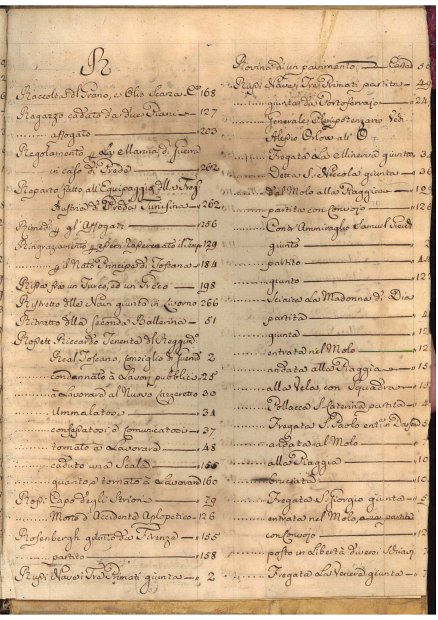 R
Raccolto di Grano, e Olio Scarza C.te 168
Ragazzo caduto da due Piani 127
affogato 203
Regolamento p La Marina di Guerra
in caso di Preda 262
Reparto fatto all'Equipaggio dlla Freg.
di Preda Tunisina 262
Rimedi p gl'Affogati 156
Ringraziamento p 129
p il Nato Principe di Toscana 184
Rissa fra un Turco, ed un Greco 198
Ristretto dlle Navi giunte in Livorno 266
Ritratto dlla Seconda Ballerina 51
Riccardo Tenente dl Regg.
Real Toscano, consiglio di Guerra 2
condannato à Lavori pubblici 25
à Lavorare al Nuovo Lazeretto 30
Ammalatosi 34
confessatosi e Comunicatosi 37
tornato à Lavorare 48
caduto una Scala 155
quanto e tornato à Lavorare 160
Capo degli Strioni 79
Morto d'Accidente Apopletico 126
Rosenbergh giunto da Firenze 155
partito 158
Russi Navi Tre Primati giunta 2
Rovina d'un pavimento Carta 50
Russi Navi Tre Primati partite 49
giunta da Portoferraio 24
Generale Plenipotenziario Vedi
Alessio Orlow all' O
Fregata La Minerva giunta 34
Detta S. Niccola giunta
dal Molo alla Piaggia
partita con Convojo 126
Contr'Ammiraglio
giunto 2
partito
giunto
Sciaica La Madonna di
partita
giunta
entrata nel Molo
andata alla Piaggia
alla Vela, con Squadra
Pollacca S. Caterina partita
Fregata S. Paolo ent. in Darsa
andata al Molo
alla Piaggia
bruciata
Fregata S. Giorgio giunta
entrata nel Molo
con Convojo
posto in Libertà diversi Schiavi
Fregata La Venera giunta